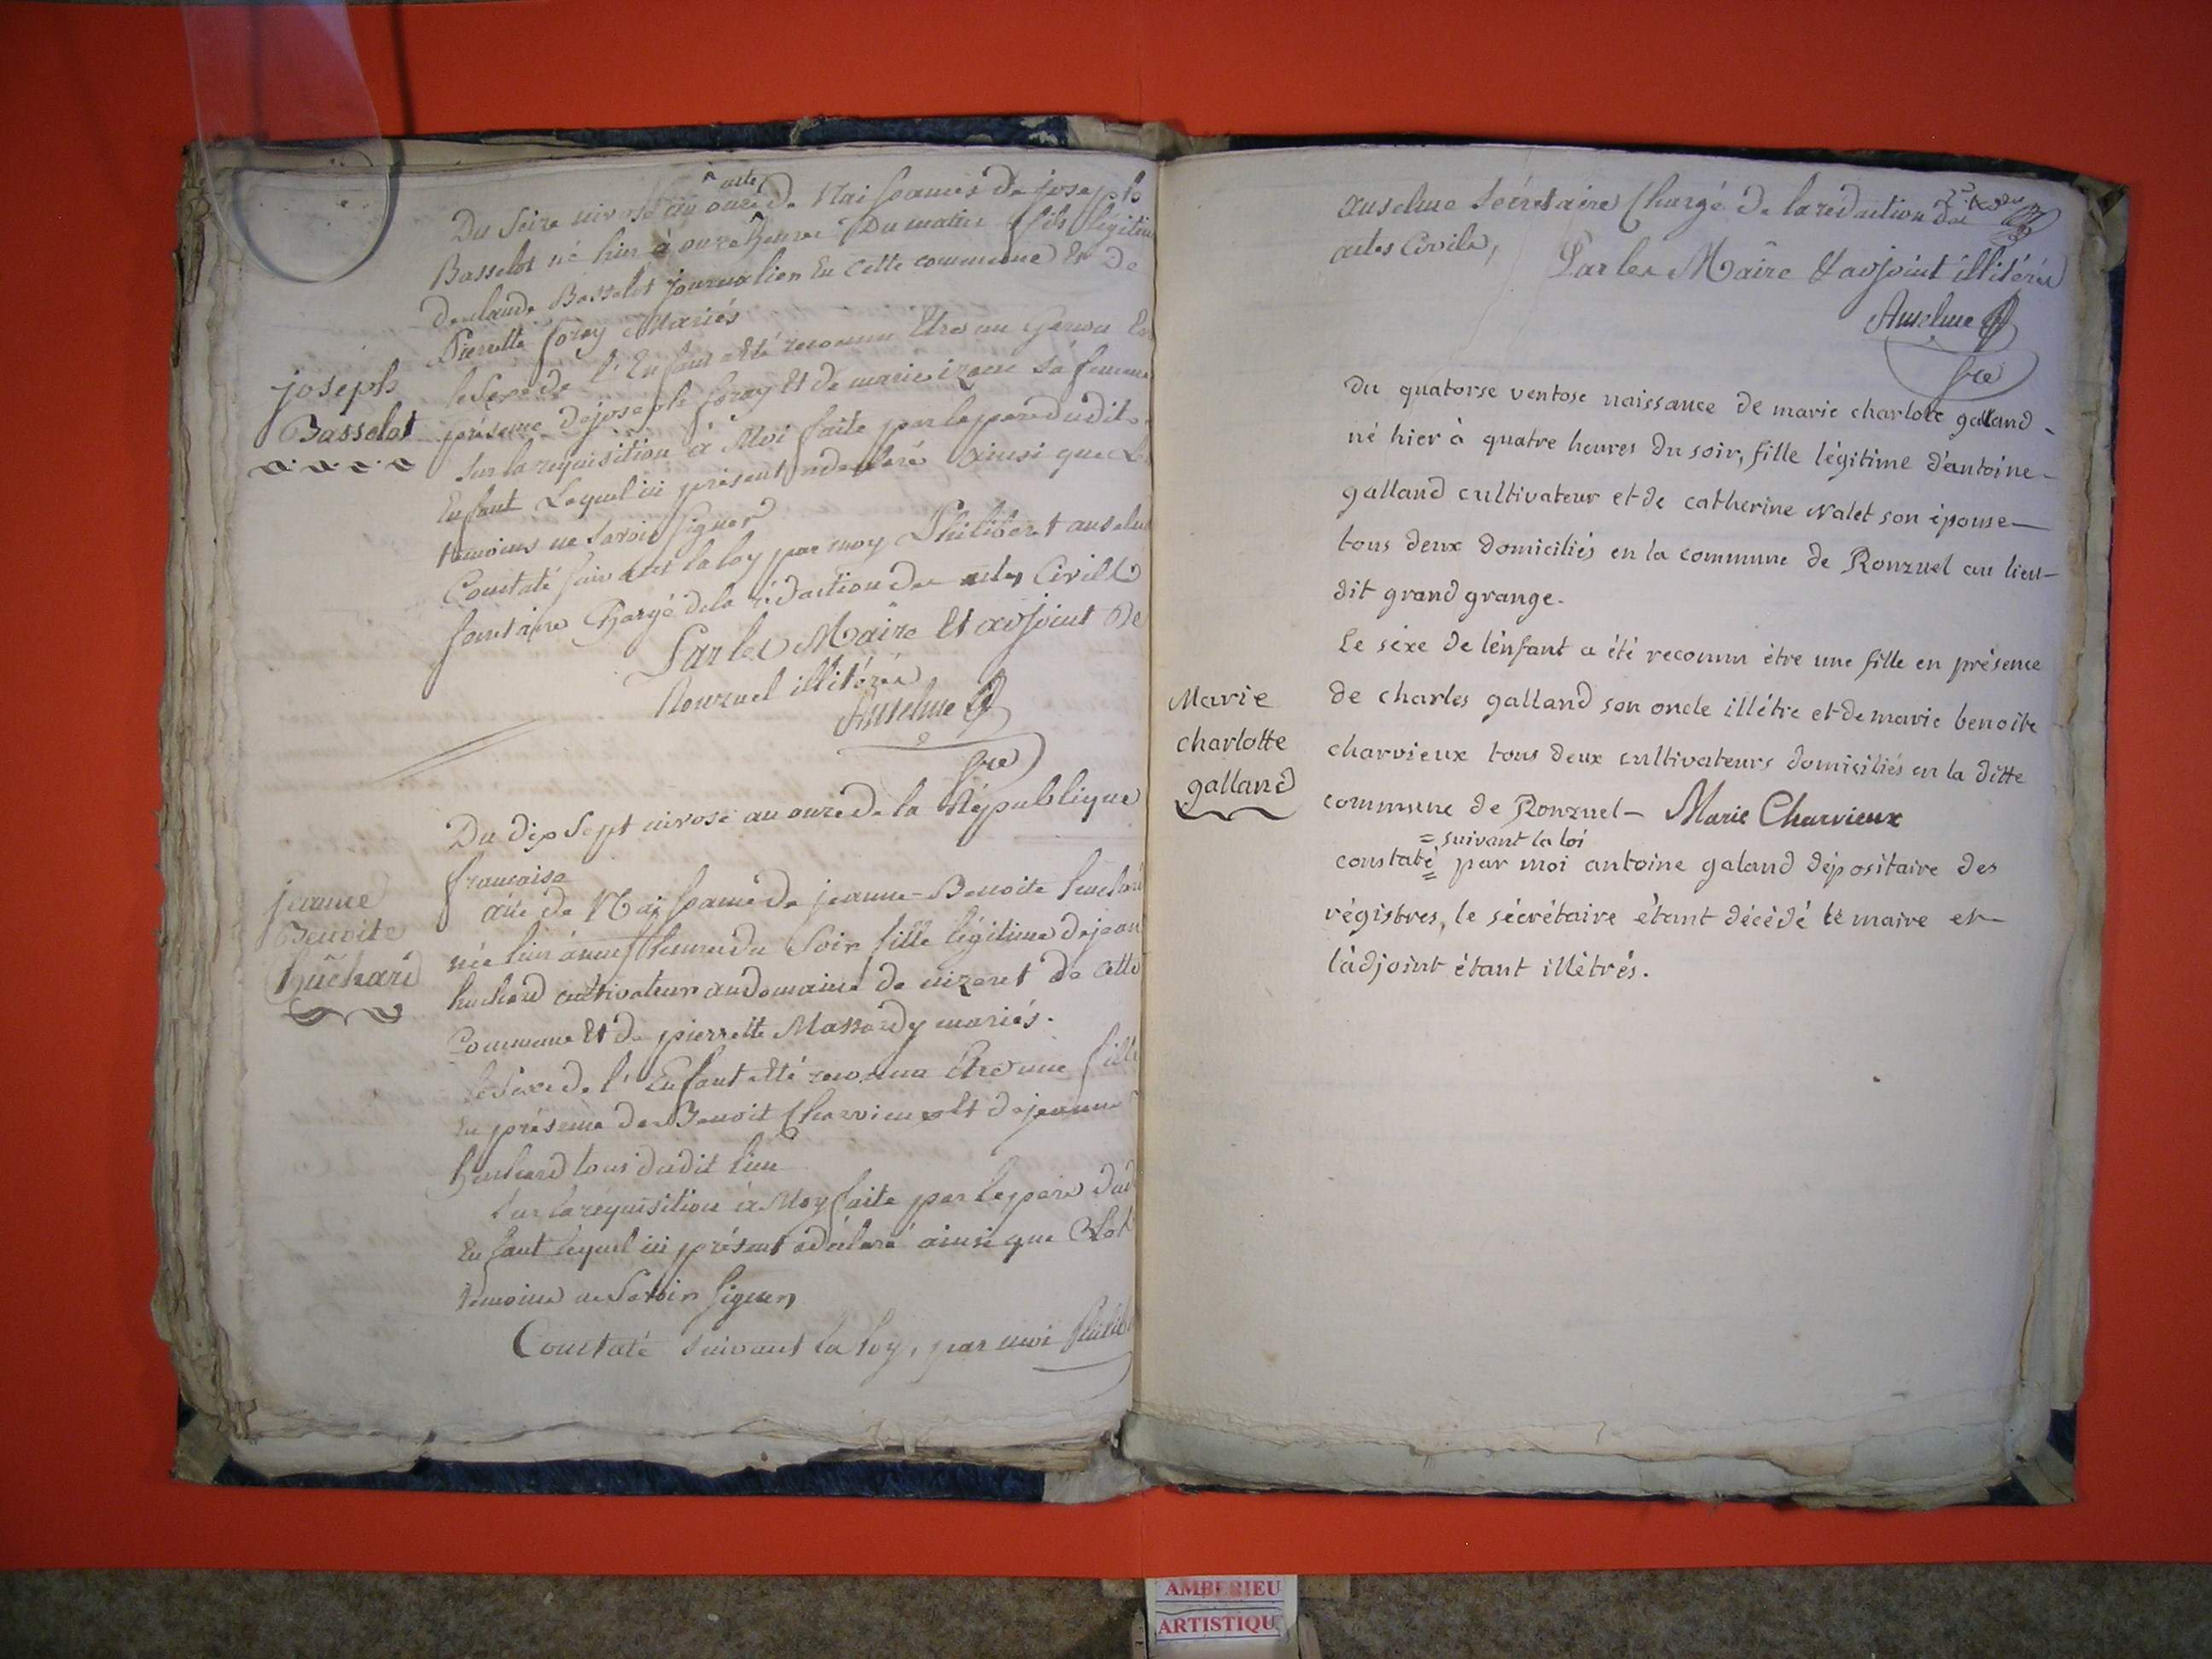 Du Seize nivose an onze acte de Naissance de joseph
Basselot né hier à onze heures Du matin fils légitime
de claude Basselot journalier En Cette commune Et De
Pierrette foray Mariés
le Sexe de l'Enfant a été reconnu Etre un Garson En
présence de joseph foray Et de marie izane sa femme
Sur la requisition à Moi faite par le pere dudit
Enfant Lequel ici présent a declaré ainsi que Les
temoins ne Savoir Signer
Constaté suivant la loy par moy Philibert anselme
secretaire Chargé de la rédaction des actes Civils
Par les Maire Et adjoint De
Ronzuel illitérés
Anselme
sre
joseph
Basselot
Du dix Sept nivose an onze de la République
francaise
acte de Naissance de jeanne-Benoite huchard
née hier à neuf heures du Soir fille légitime de jean
huchard cultivateur au domaine de nizeret de Cette
Commune Et de pierrette Massardy mariés.
le Sexe de l'Enfant a été reconnu Etre une fille
En présence de Benoit Charvieux Et de jeanne
huchard tous dudit lieu
Sur la réquisition à Moy faite par le pere dud
Enfant lequel ici présent a déclaré ainsi que Les
temoins ne Savoir Signer
Constaté suivant la loy, par moi Philib
jeanne
Benoite
hûchard
anselme Sécretaire Chargé De la rédaction des
actes Civils,
Par les Maire & adjoint illitérés
Anselme
sre
Du quatorse ventose naissance de marie charlote galland
né hier à quatre heures du soir, fille légitime d'antoine
galland cultivateur et de catherine Nalet son épouse
tous deux domiciliés en la commune de Ronzuel au lieu
dit grand grange.
Le séxe de l'enfant a été reconnu être une fille en présence
de charles galland son oncle illétre et de marie benoite
charvieux tous deux cultivateurs domiciliés en la ditte
commune de Ronzuel - Marie Charvieux
= suivant la loi
constaté = par moi antoine galand dépositaire des
régistres, le sécrétaire étant décédé le maire et
l'adjoint étant illétrés.
Marie
charlotte
galland
AMBERIEU
ARTISTIQU